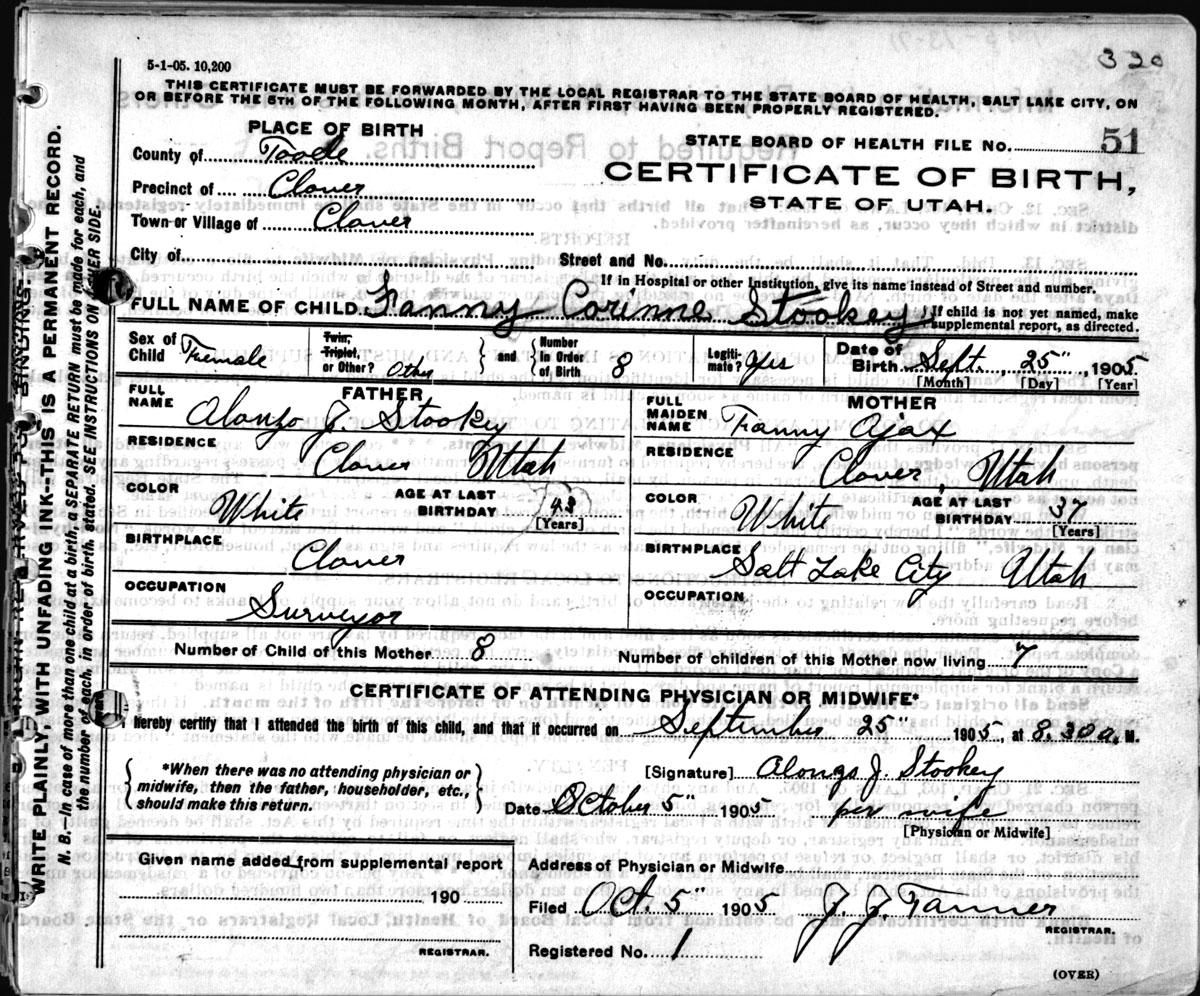 320
5-1-05. 10,200
THIS CERTIFICATE MUST BE FORWARDED BY THE LOCAL REGISTRAR TO THE STATE BOARD OF HEALTH, SALT LAKE CITY, ON
OR BEFORE THE 5TH OF THE FOLLOWING MONTH, AFTER FIRST HAVING BEEN PROPERLY REGISTERED.
PLACE OF BIRTH
STATE BOARD OF HEALTH FILE NO. 51
County of Tooele
CERTIFICATE OF BIRTH,
Precinct of Clover
STATE OF UTAH.
Town or Village of Clover
City of
Street and No.
If in Hospital or other Institution, give its name instead of Street and number.
FULL NAME OF CHILD Fanny Corinne Stookey
If child is not yet named, make
supplemental report, as directed.
Sex of Child Female Twin, Triplet, or Other? Other and Number in Order of Birth 8 Legitimate? Yes Date of Birth Sept. 25" 1905
[Month] [Day] [Year]
FATHER
FULL NAME Alonzo J. Stookey
MOTHER
FULL MAIDEN NAME Franny Ajax
RESIDENCE Clover Utah
RESIDENCE Clover, Utah
COLOR White AGE AT LAST BIRTHDAY 43 [Years]
COLOR White AGE AT LAST BIRTHDAY 37 [Years]
BIRTHPLACE Clover
BIRTHPLACE Salt Lake City Utah
OCCUPATION Surveyor
OCCUPATION
Number of Child of this Mother 8
Number of children of this Mother now living 7
CERTIFICATE OF ATTENDING PHYSICIAN OR MIDWIFE*
I hereby certify that I attended the birth of this child, and that it occurred on September 25" 1905, at 8.30 a. M.
*When there was no attending physician or
midwife, then the father, householder, etc.,
should make this return.
[Signature] Alonzo J. Stookey
Date October 5" 1905 per wife
[Physician or Midwife]
Given name added from supplemental report
190
REGISTRAR.
Address of Physician or Midwife
Filed Oct. 5" 1905 J. J. Tanner
REGISTRAR.
Registered No. 1
(OVER)
WRITE PLAINLY WITH UNFADING INK—THIS IS A PERMANENT RECORD.
N. B.—In case of more than one child at a birth, a SEPARATE RETURN must be made for each, and
the number of each, in order of birth, stated. SEE INSTRUCTIONS ON OTHER SIDE.